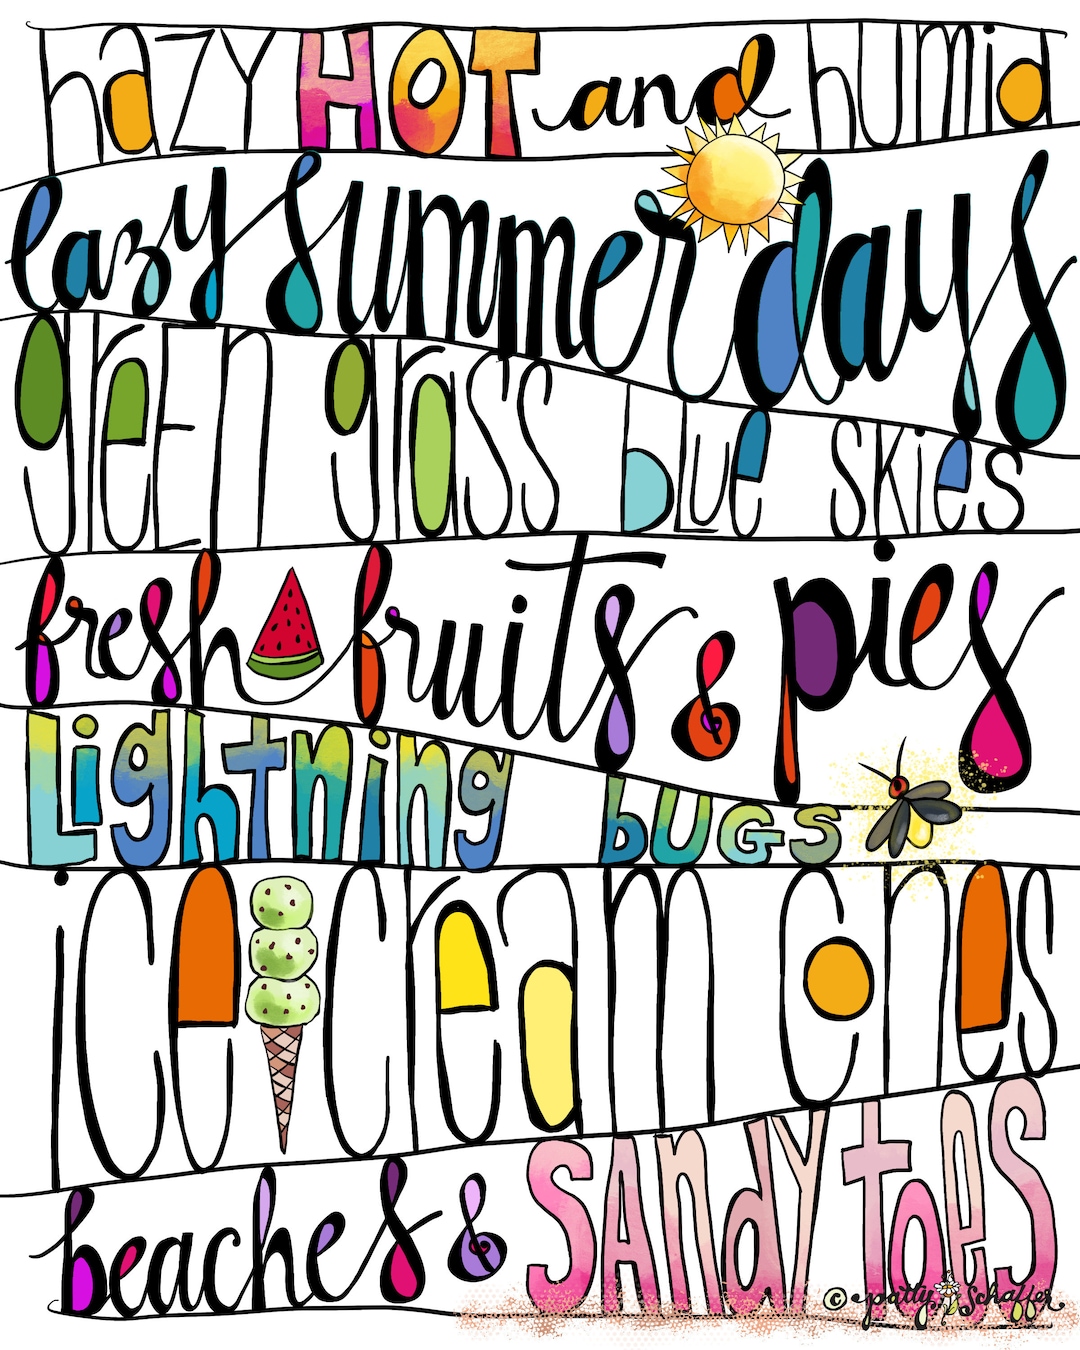 hazy HOT and humid
lazy summer days
green grass blue skies
fresh fruits & pies
Lightning bugs
ice cream cones
beaches & sandy toes
© patty schaffer